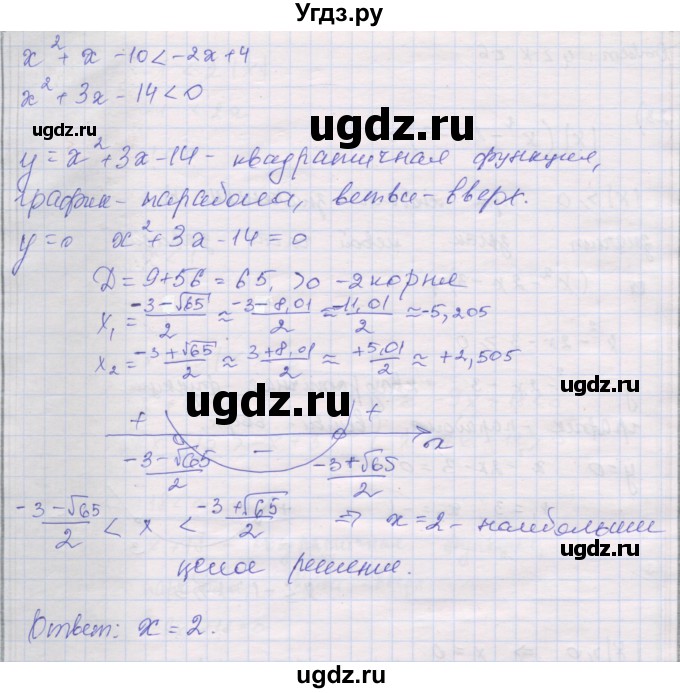 Угдз.ру
x² + x - 10 < -2x + 4
x² + 3x - 14 < 0
ugdz.ru
y = x² + 3x - 14 - квадратичная функция,
график - парабола, ветви - вверх.
ugdz.ru
y = 0 x² + 3x - 14 = 0
D = 9 + 56 = 65, >0 - 2 корня
x₁ = (-3 - √65)/2 ≈ (-3 - 8,01)/2 ≈ (-11,01)/2 ≈ -5,205
x₂ = (-3 + √65)/2 ≈ (3 + 8,01)/2 ≈ (+5,01)/2 ≈ +2,505
ugdz.ru
+ - + x
(-3 - √65)/2 (-3 + √65)/2
(-3 - √65)/2 < x < (-3 + √65)/2 ⇒ x = 2 - наибольшее
ugdz.ru
целое решение.
ugdz.ru
Ответ: x = 2.
ugdz.ru
ugdz.ru